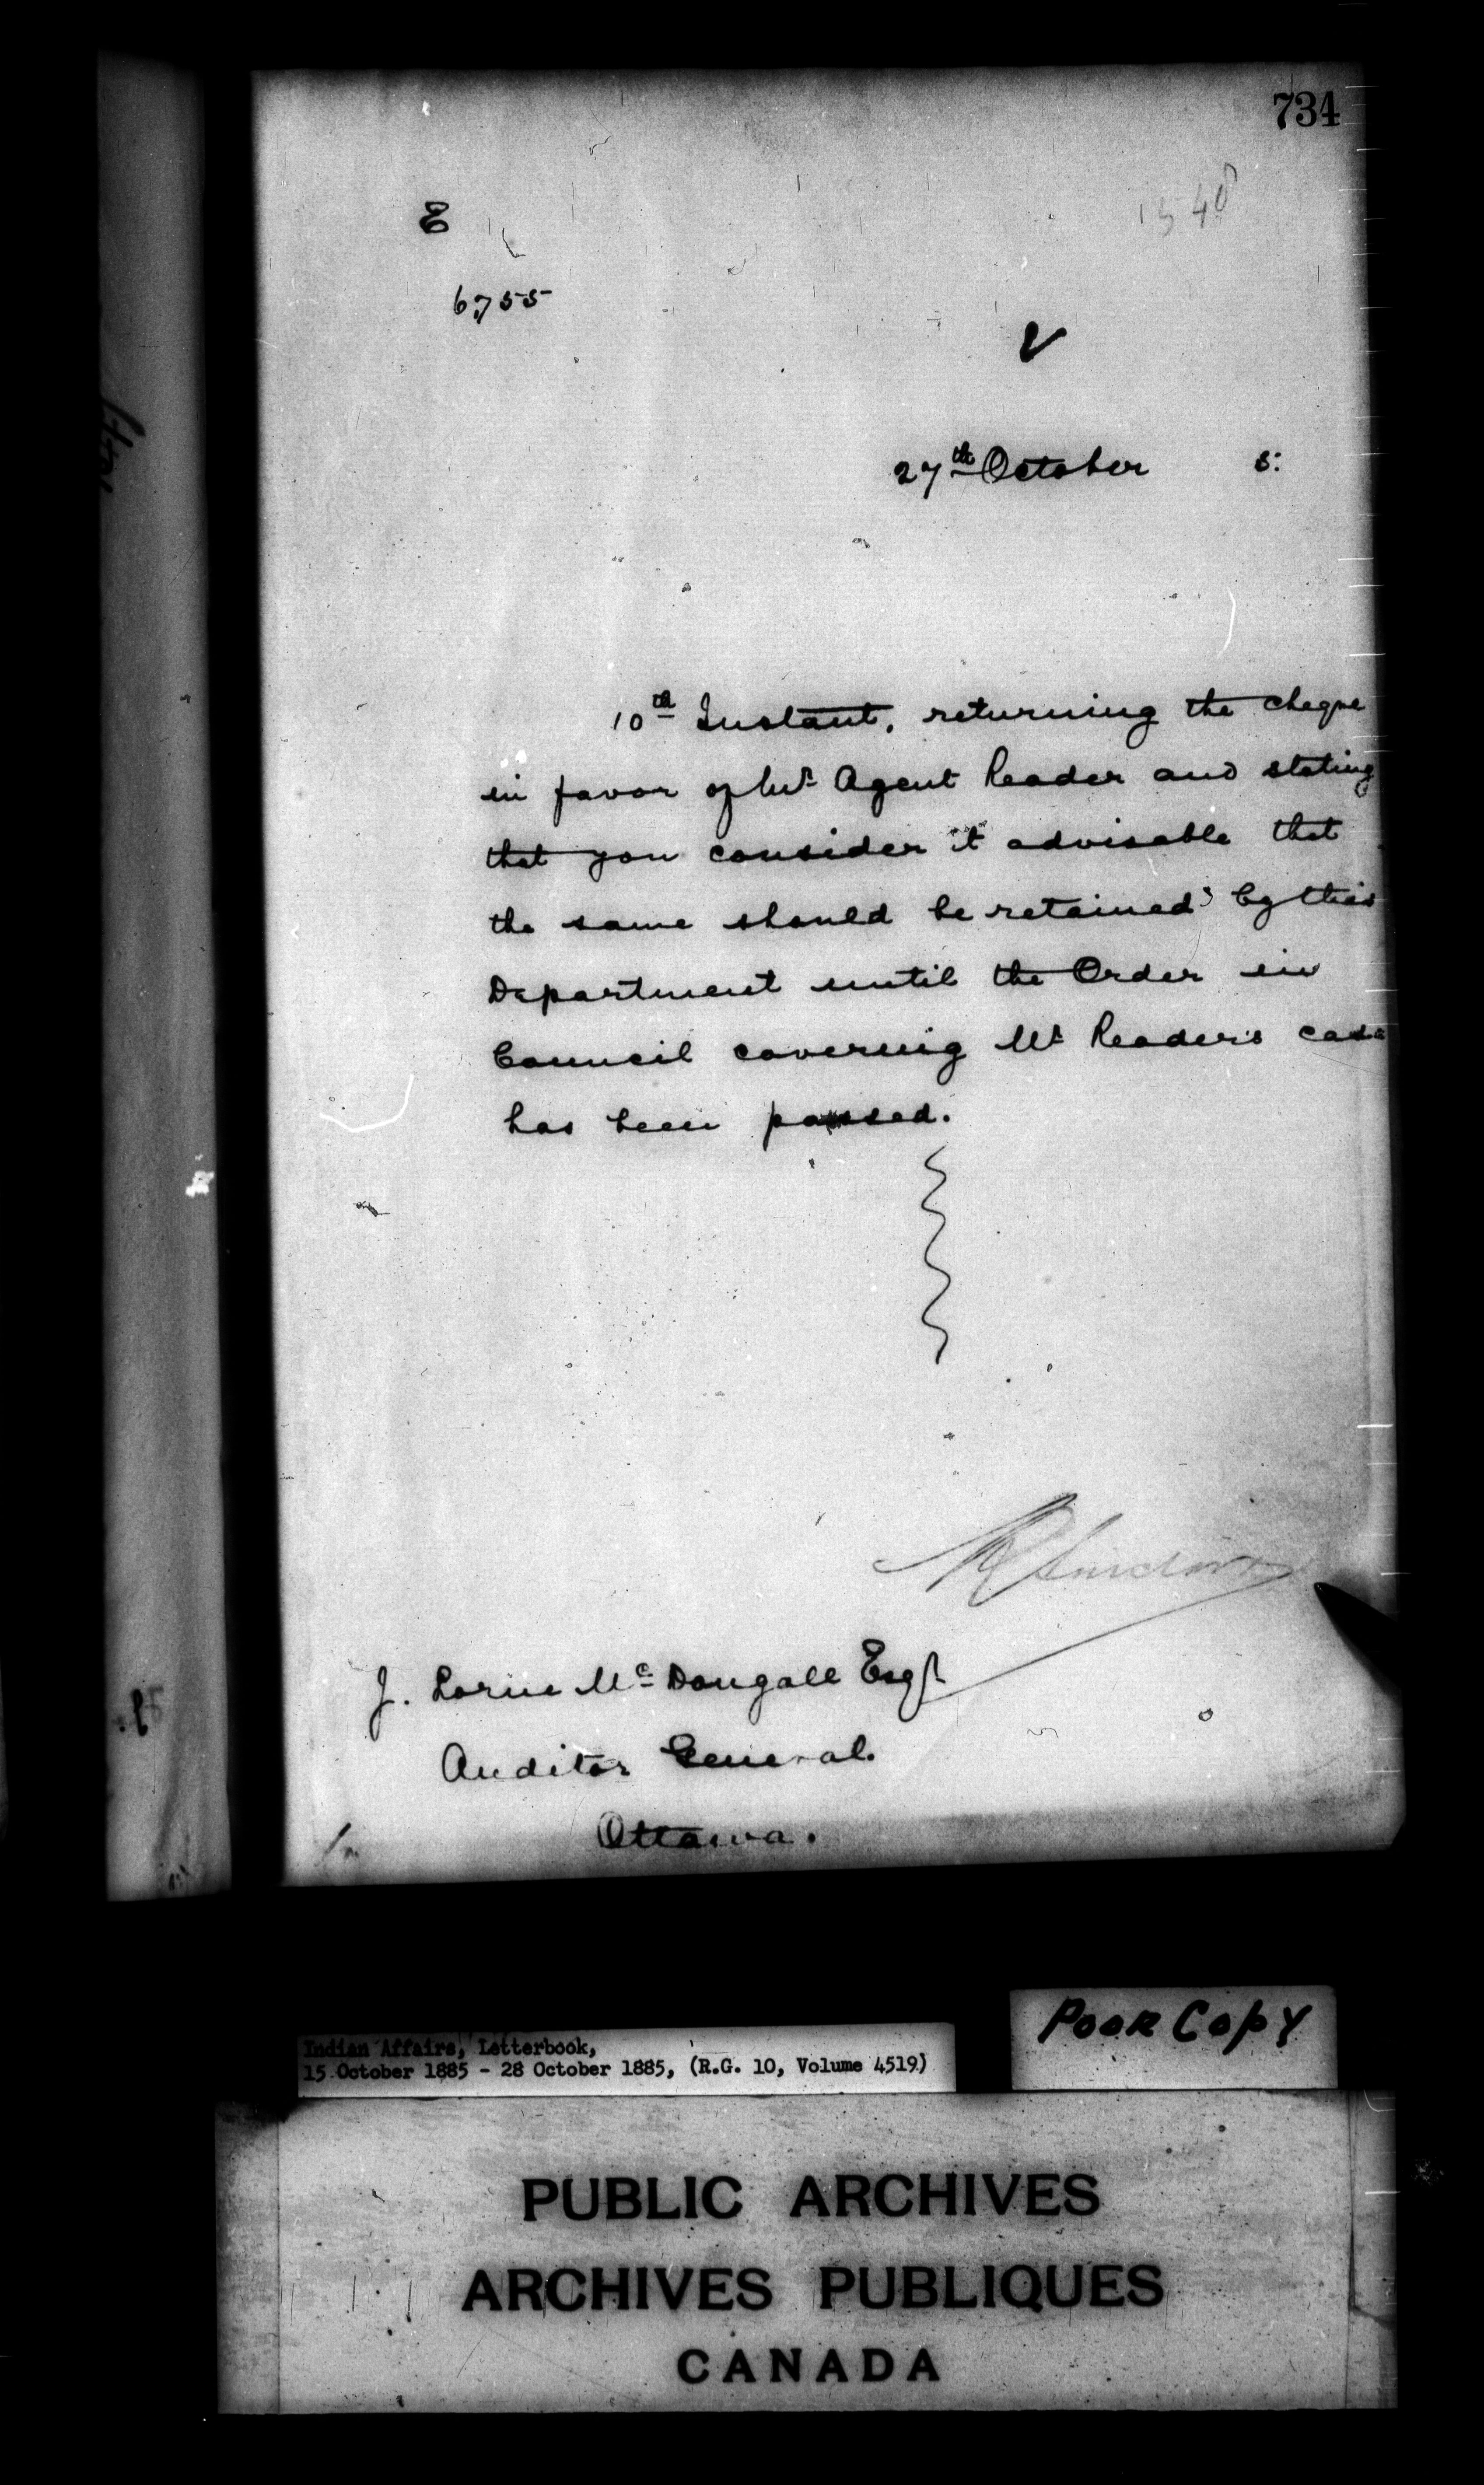 734
1548
E
6755
27th October 5:
10th Instant, returning the cheque
in favor of Mr Agent Reader and stating
that you consider it advisable that
the same should be retained by this
Department until the Order in
Council covering Mr Reader's case
has been passed.
J. Lorne McDougall Esqr
Auditor General.
Ottawa.
Poor Copy
Indian Affairs, Letterbook,
15 October 1885 - 28 October 1885, (R.G. 10, Volume 4519)
PUBLIC ARCHIVES
ARCHIVES PUBLIQUES
CANADA